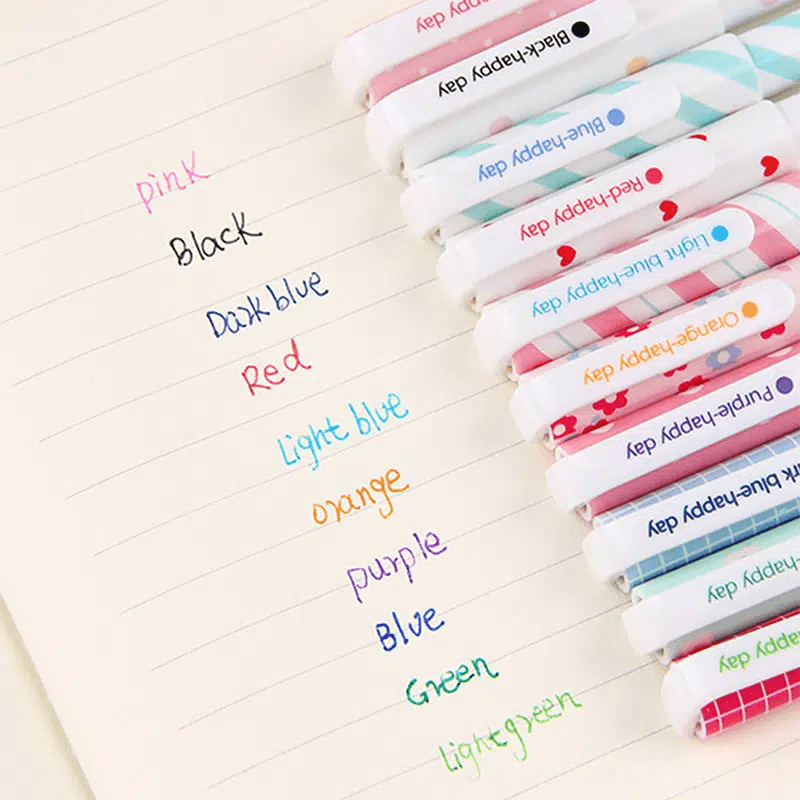 pink
Black
Dark blue
Red
Light blue
orange
purple
Blue
Green
Light green
happy day
Black-happy day
Blue-happy day
Red-happy day
Light blue-happy day
Orange-happy day
Purple-happy day
blue-happy day
happy day
happy day